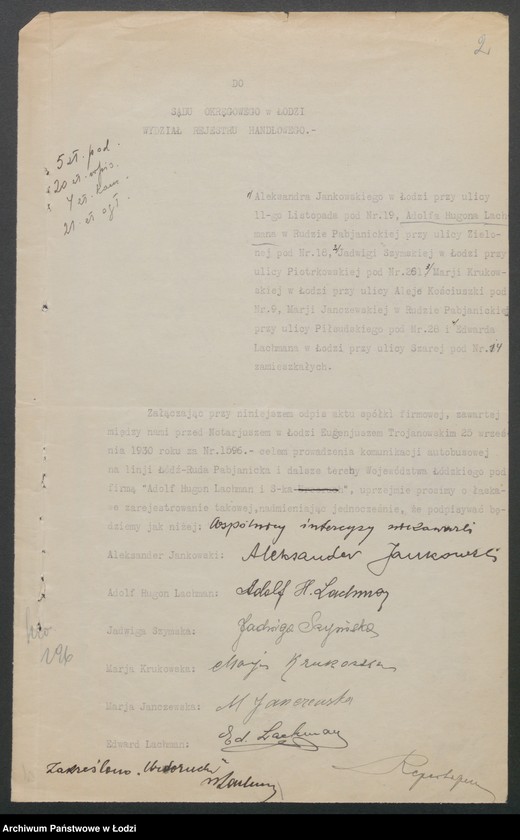 2
DO
SĄDU OKRĘGOWEGO w ŁODZI
WYDZIAŁ REJESTRU HANDLOWEGO.-
5 zł. pod.
20 zł. wpis.
4 zł. kan.
21. zł ogł.
Aleksandra Jankowskiego w Łodzi przy ulicy
11-go Listopada pod Nr.19, Adolfa Hugona Lach
mana w Rudzie Pabjanickiej przy ulicy Zielo-
nej pod Nr.18, Jadwigi Szymskiej w Łodzi przy
ulicy Piotrkowskiej pod Nr.261 Marji Krukow-
skiej w Łodzi przy ulicy Aleje Kościuszki pod
Nr.9, Marji Janczewskiej w Rudzie Pabjanickiej
przy ulicy Piłsudskiego pod Nr.28 i Edwarda
Lachmana w Łodzi przy ulicy Szarej pod Nr.14
zamieszkałych.
Załączając przy niniejszem odpis aktu spółki firmowej, zawartej
między nami przed Notarjuszem w Łodzi Eugenjuszem Trojanowskim 25 wrześ-
nia 1930 roku za Nr.1696.- celem prowadzenia komunikacji autobusowej
na linji Łódź-Ruda Pabjanicka i dalsze tereny Województwa Łódzkiego pod
firmą "Adolf Hugon Lachman i S-ka", uprzejmie prosimy o łaska-
we zarejestrowanie takowej, nadmieniając jednocześnie, że podpisywać bę-
dziemy jak niżej: Wspólnicy intercyz nie zawarli
Aleksander Jankowski: Aleksander Jankowski
Adolf Hugon Lachman: Adolf H. Lachman
Jadwiga Szymska: Jadwiga Szymska
Marja Krukowska: Marja Krukowska
Marja Janczewska: M Janczewska
Edward Lachman: Ed. Lachman
196
Zakreślono
Archiwum Państwowe w Łodzi